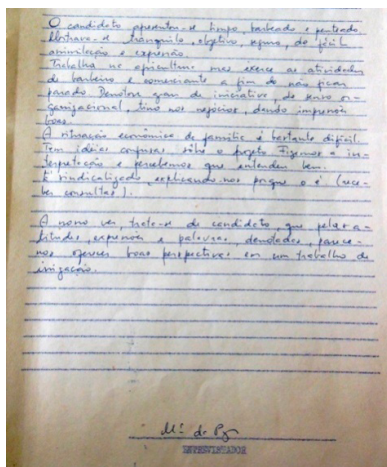 O candidato apresenta-se limpo, barbeado e penteado.
Mostrou-se tranquilo, objetivo, seguro, de fácil
assimilação e expressão.
Trabalha na agricultura mas exerce as atividades
de barbeiro e comerciante a fim de não ficar
parado. Denotou gran de iniciativa, de senso or-
ganizacional, tino nos negócios, dando impressões
boas.
A situação econômica da família é bastante difícil.
Tem idéias confusas sôbre o projeto. Fizemos a in-
terpretação e percebemos que entendeu bem.
É sindicalizado, explicando-nos porque o é (rece-
ber consultas).
A nosso ver, trata-se de candidato, que pelas a-
titudes, expressões e palavras, denotadas, parece-
nos oferecer boas perspectivas em um trabalho de
irrigação.
ENTREVISTADOR